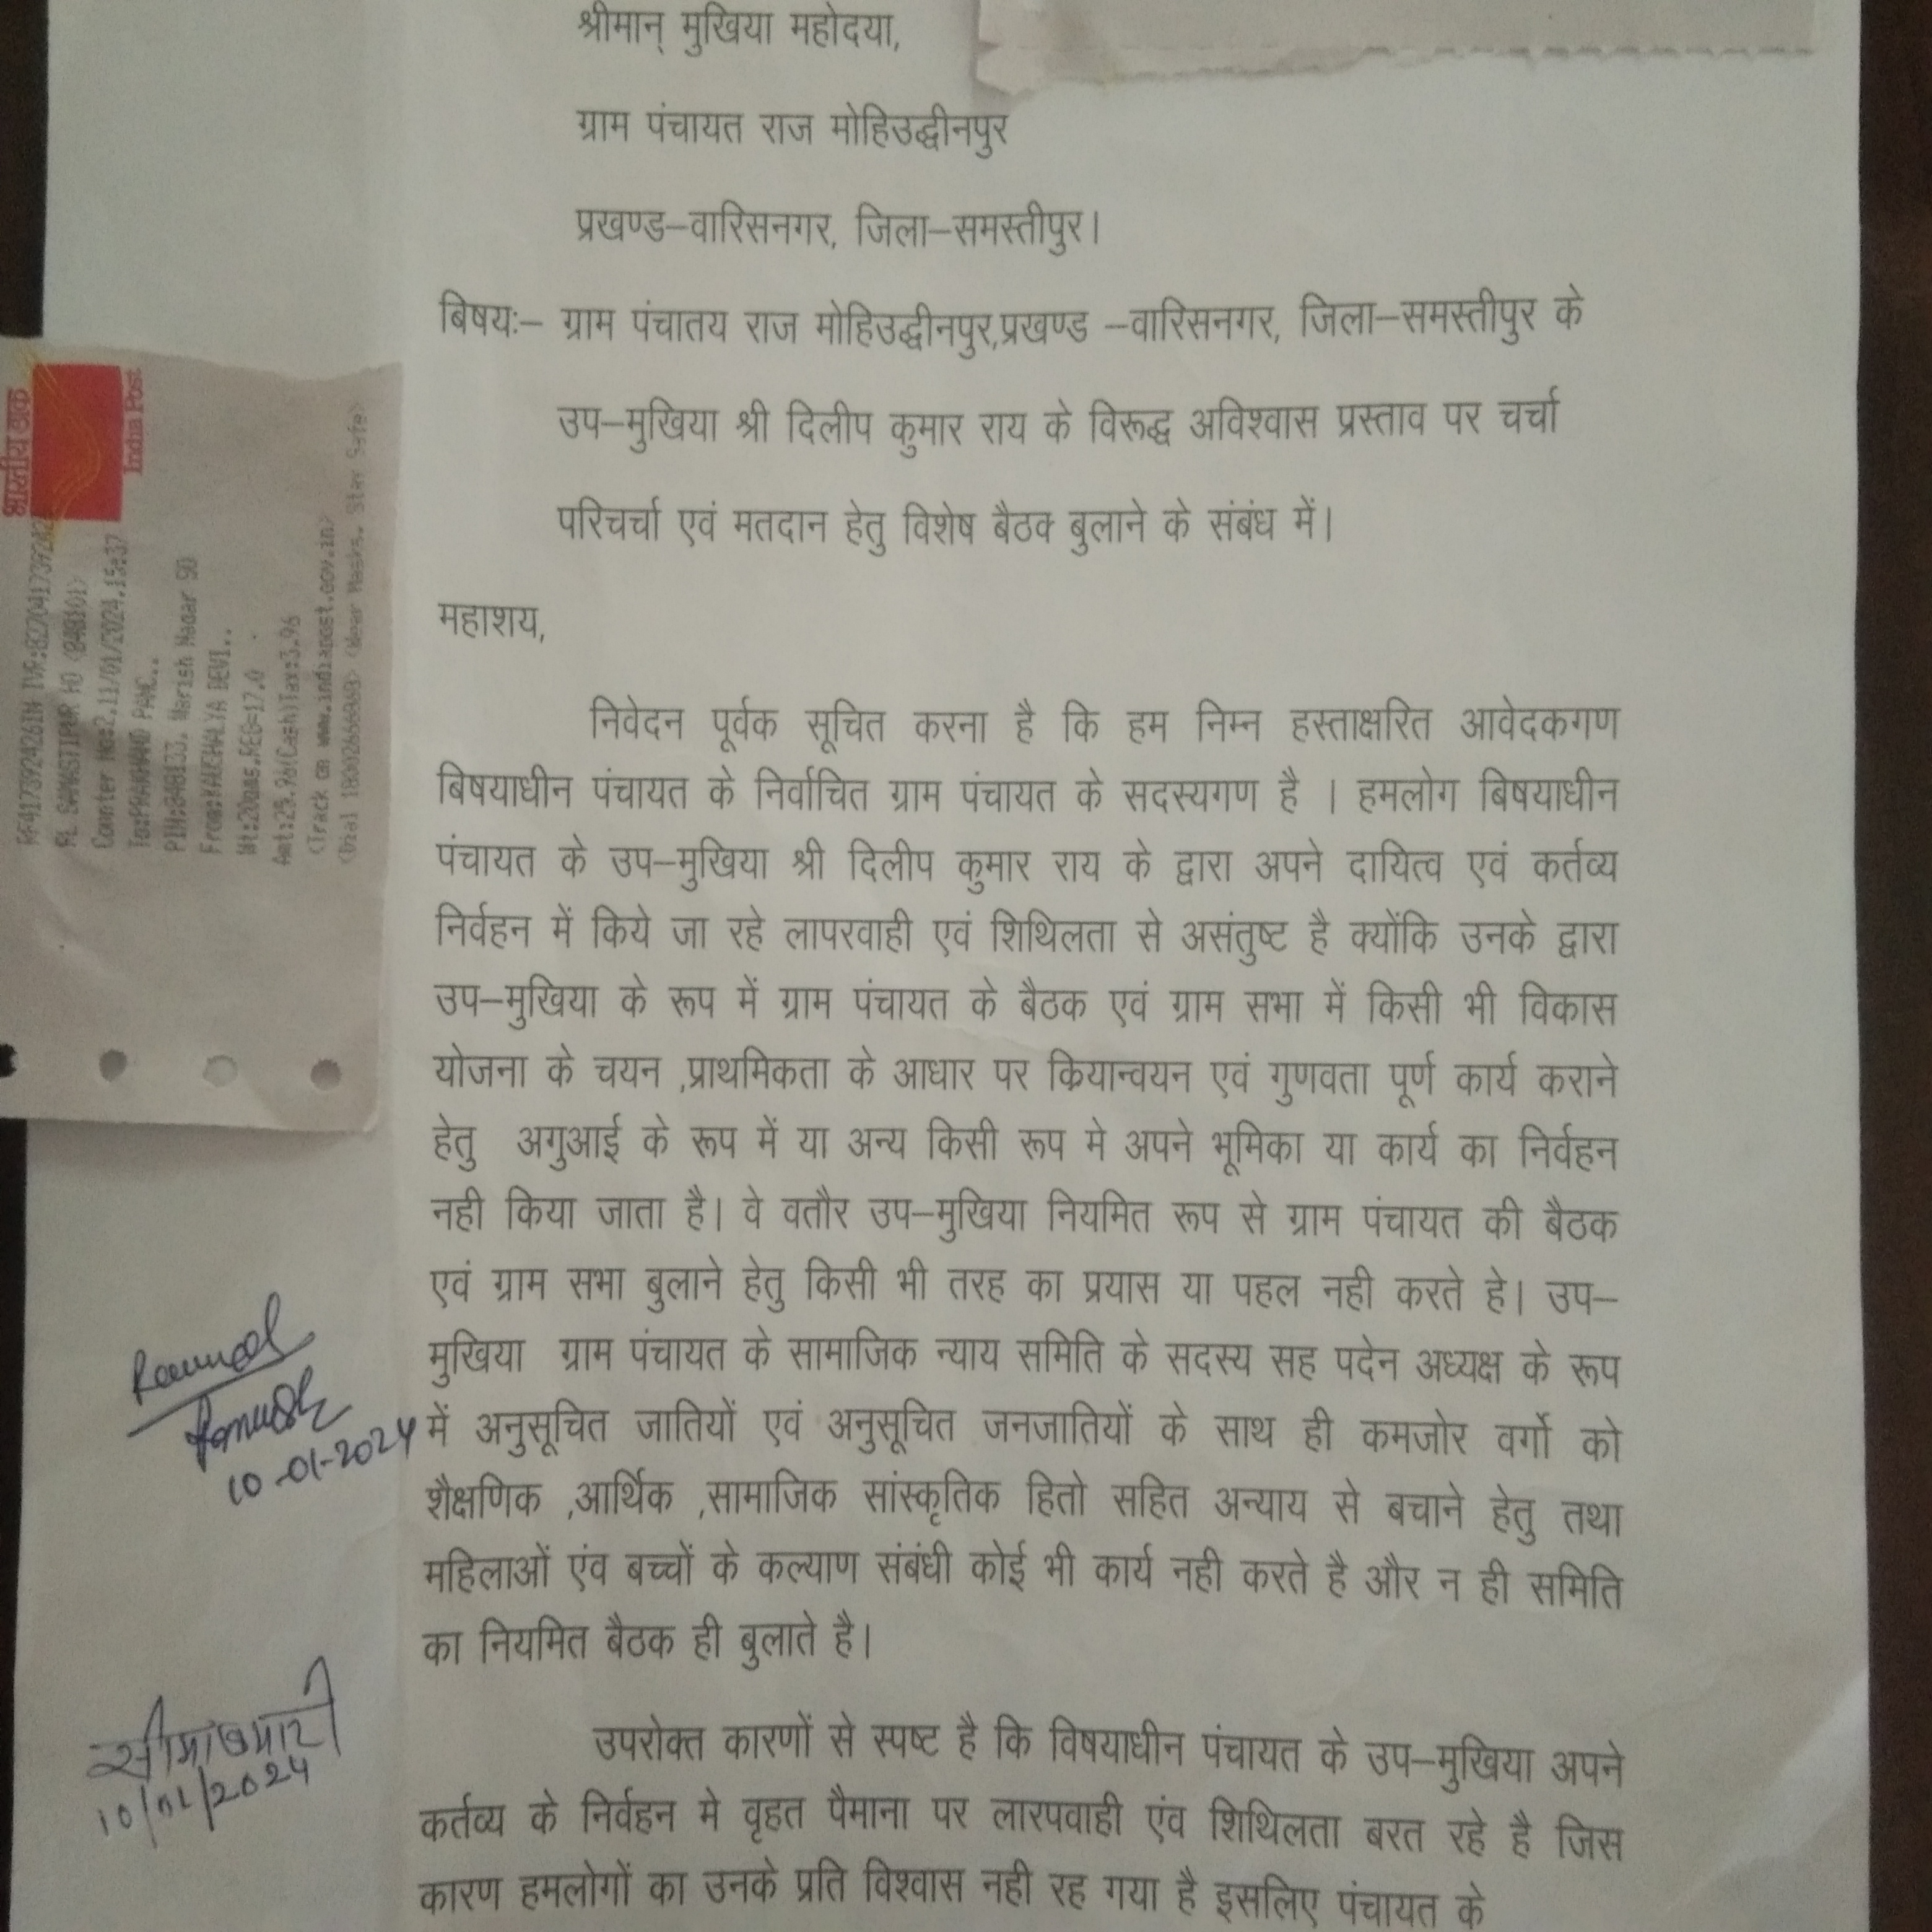 श्रीमान् मुखिया महोदया,
ग्राम पंचायत राज मोहिउद्धीनपुर
प्रखण्ड–वारिसनगर, जिला–समस्तीपुर।
बिषयः– ग्राम पंचातय राज मोहिउद्धीनपुर,प्रखण्ड –वारिसनगर, जिला–समस्तीपुर के
उप–मुखिया श्री दिलीप कुमार राय के विरूद्ध अविश्वास प्रस्ताव पर चर्चा
परिचर्चा एवं मतदान हेतु विशेष बैठक बुलाने के संबंध में।
महाशय,
निवेदन पूर्वक सूचित करना है कि हम निम्न हस्ताक्षरित आवेदकगण
बिषयाधीन पंचायत के निर्वाचित ग्राम पंचायत के सदस्यगण है । हमलोग बिषयाधीन
पंचायत के उप–मुखिया श्री दिलीप कुमार राय के द्वारा अपने दायित्व एवं कर्तव्य
निर्वहन में किये जा रहे लापरवाही एवं शिथिलता से असंतुष्ट है क्योंकि उनके द्वारा
उप–मुखिया के रूप में ग्राम पंचायत के बैठक एवं ग्राम सभा में किसी भी विकास
योजना के चयन ,प्राथमिकता के आधार पर कियान्वयन एवं गुणवता पूर्ण कार्य कराने
हेतु अगुआई के रूप में या अन्य किसी रूप मे अपने भूमिका या कार्य का निर्वहन
नही किया जाता है। वे वतौर उप–मुखिया नियमित रूप से ग्राम पंचायत की बैठक
एवं ग्राम सभा बुलाने हेतु किसी भी तरह का प्रयास या पहल नही करते हे। उप–
मुखिया ग्राम पंचायत के सामाजिक न्याय समिति के सदस्य सह पदेन अध्यक्ष के रूप
में अनुसूचित जातियों एवं अनुसूचित जनजातियों के साथ ही कमजोर वर्गो को
शैक्षणिक ,आर्थिक ,सामाजिक सांस्कृतिक हितो सहित अन्याय से बचाने हेतु तथा
महिलाओं एंव बच्चों के कल्याण संबंधी कोई भी कार्य नही करते है और न ही समिति
का नियमित बैठक ही बुलाते है।
उपरोक्त कारणों से स्पष्ट है कि विषयाधीन पंचायत के उप–मुखिया अपने
कर्तव्य के निर्वहन मे वृहत पैमाना पर लारपवाही एंव शिथिलता बरत रहे है जिस
कारण हमलोगों का उनके प्रति विश्वास नही रह गया है इसलिए पंचायत के
भारतीय डाक
India Post
RL SAMASTIPUR HO <848101>
Counter No:2,11/01/2024,15:37
To:PRAKHAND PANC..
PIN:848133, Warish Nagar SO
From:KAUSHALYA DEVI..
Wt:20gms,REG=17.0
Amt:25.96(Cash)Tax:3.96
<Track on www.indiapost.gov.in>
<Dial 18002666868> <Wear Masks, Stay Safe>
10-01-2024
सीमा कुमारी
10/01/2024